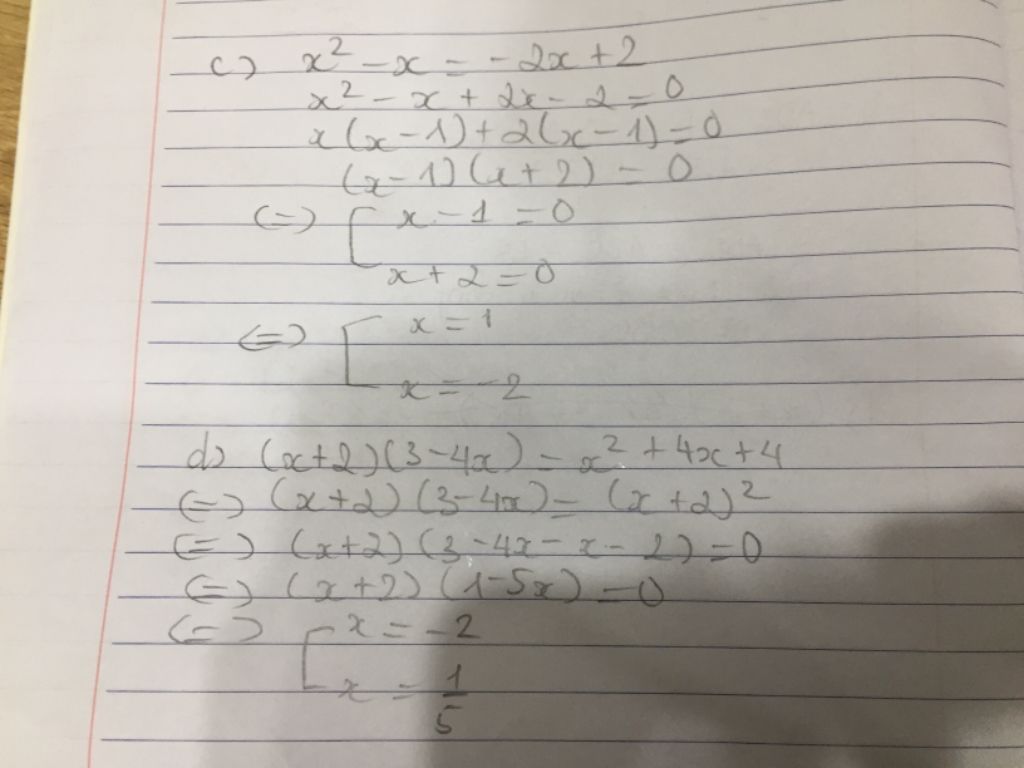 c) x² - x = -2x + 2
x² - x + 2x - 2 = 0
x(x - 1) + 2(x - 1) = 0
(x - 1)(x + 2) = 0
(=) [ x - 1 = 0
x + 2 = 0
(=) [ x = 1
x = -2
d) (x+2)(3-4x) = x² + 4x + 4
(=) (x+2)(3-4x) = (x+2)²
(=) (x+2)(3-4x-x-2) = 0
(=) (x+2)(1-5x) = 0
(=) [ x = -2
x = 1/5